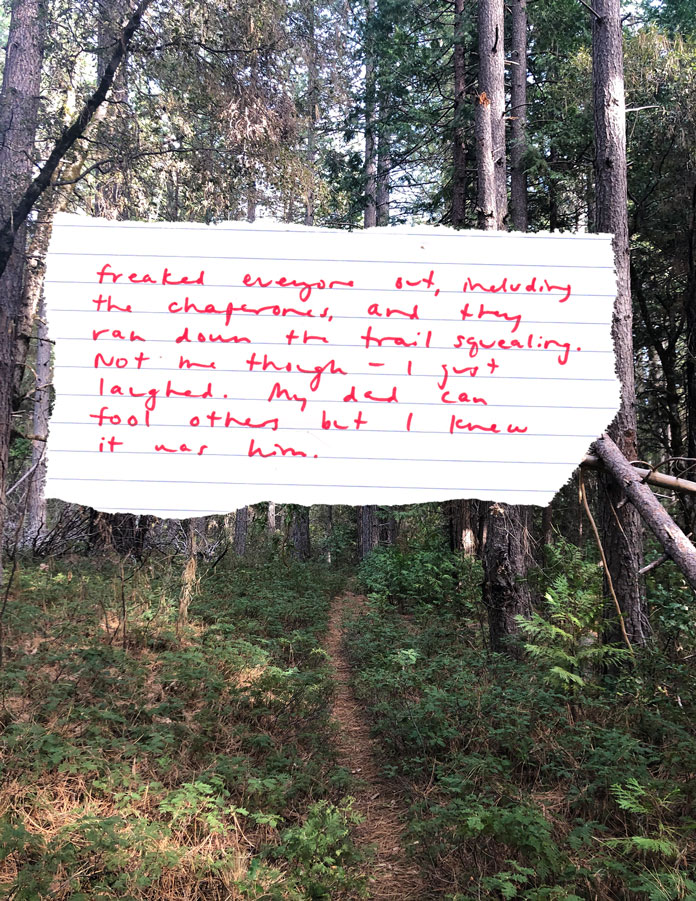 freaked everyone out, including
the chaperones, and they
ran down the trail squealing.
Not me though – I just
laughed. My dad can
fool others but I knew
it was him.